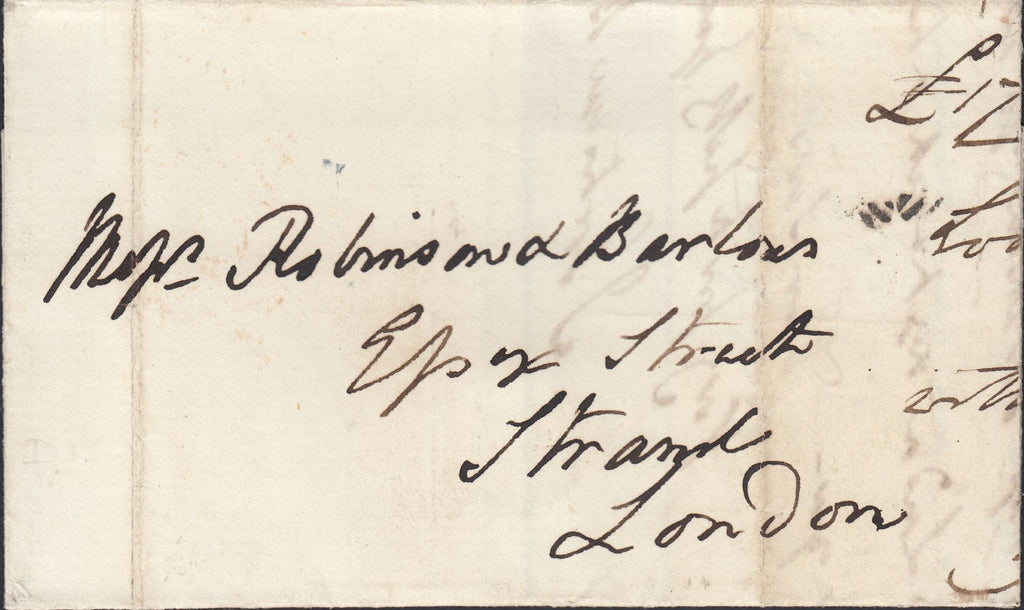 £17
Messrs Robinson & Barlow
Essex Street
Strand
London
with